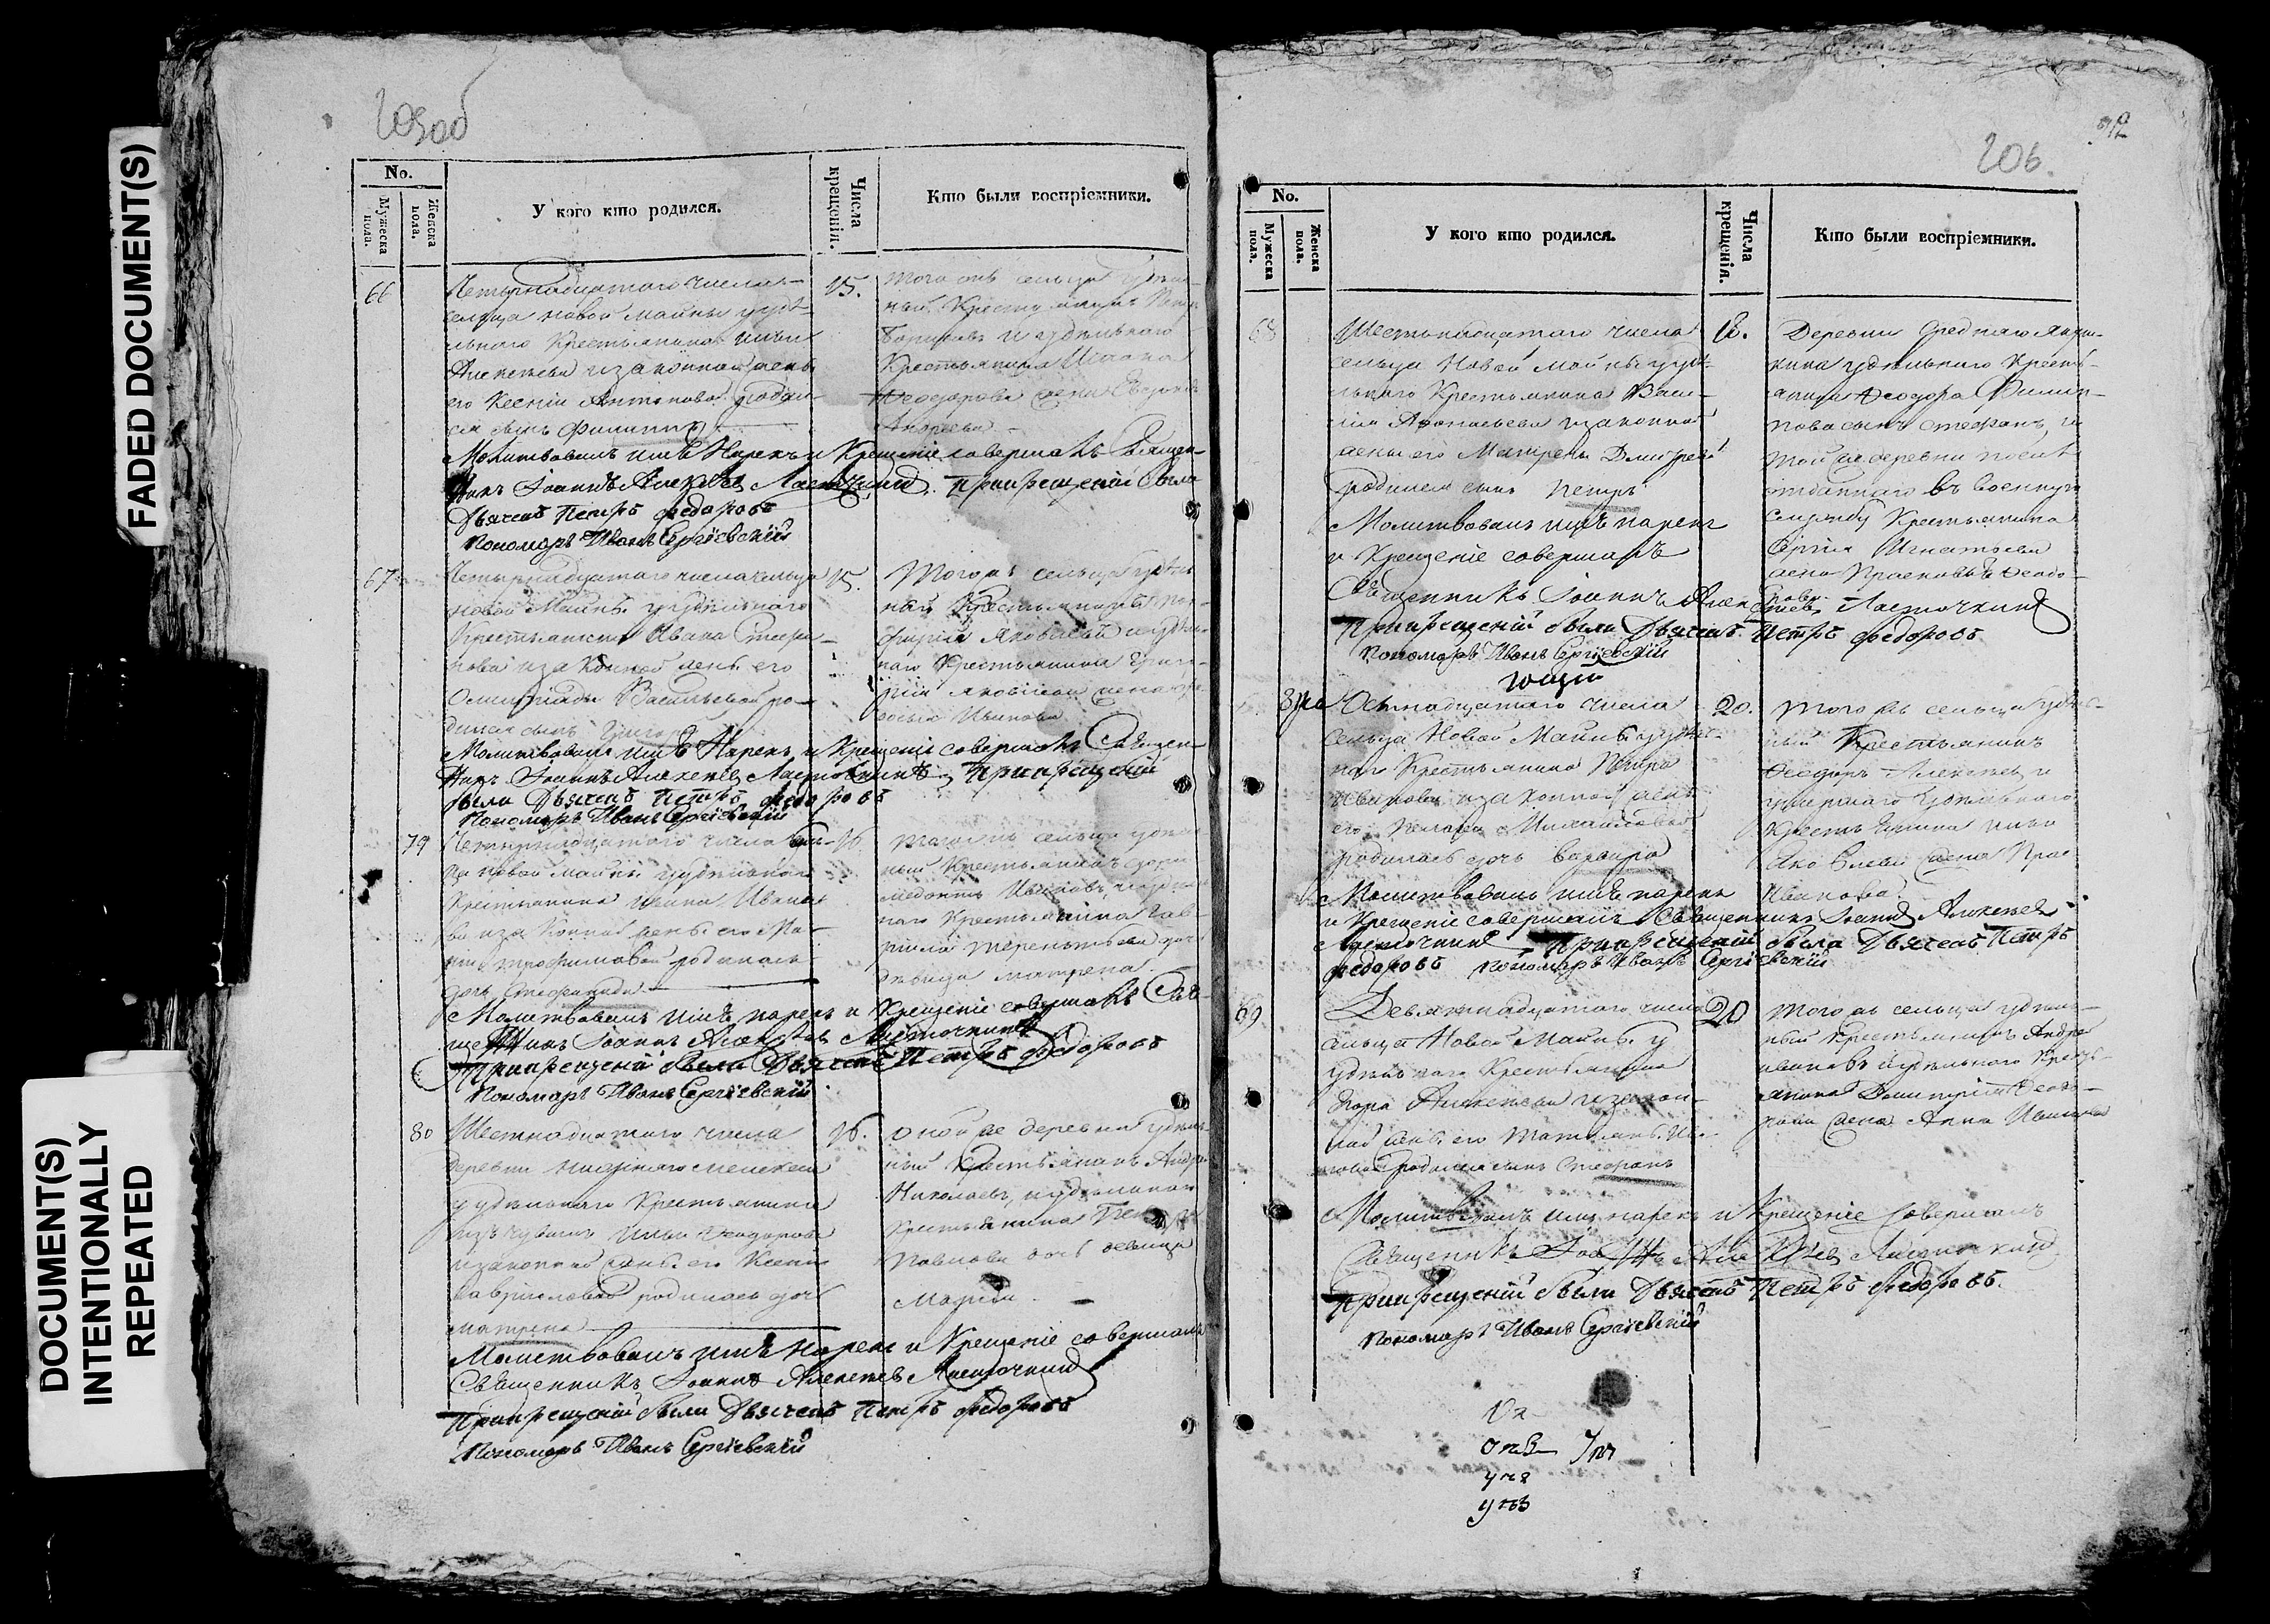 FADED DOCUMENT(S)
DOCUMENT(S)
INTENTIONALLY
REPEATED
205об
No.
Мужеска пола.
Женска пола.
У кого кто родился.
Числа крещенія.
Кто были воспріемники.
66
Четырнадцатаго числа
сельца Новой Майны удѣ-
льнаго Крестьянина Ильи
Алексѣева и законной жены
его Ксеніи Антоновой родил-
ся сынъ Филиппъ
15.
того жъ сельца удѣль-
ный Крестьянинъ Петръ
и удѣльнаго
Крестьянина
Ѳеодорова жена
Андреева
Молитвовалъ имя Нарекъ и Крещеніе совершалъ Священ-
никъ Іоаннъ Алексѣевъ Ласточкинъ. При крещеніи были
Дьячекъ Петръ Федоровъ
Пономарь Иванъ Сергіевскій
67
Четырнадцатаго числа сельца
Новой Майны удѣльнаго
Крестьянина Ивана Степа-
нова и законной жены его
Васильевой ро-
дился сынъ
15.
Того жъ сельца удѣль-
ный Крестьянинъ Пор-
фирій Яковлевъ и удѣль-
наго Крестьянина Григо-
рія Яковлева жена
Иванова
Молитвовалъ имя Нарекъ и Крещеніе совершалъ Священ-
никъ Іоаннъ Алексѣевъ Ласточкинъ При крещеніи
были Дьячекъ Петръ Федоровъ
Пономарь Иванъ Сергіевскій
79
Четырнадцатаго числа сель-
ца Новой Майны удѣльнаго
Крестьянина Ивана Ивано-
ва и законной жены его Ма-
ріи Трофимовой родилась
дочь Стефанида
16.
того жъ сельца удѣль-
ный Крестьянинъ
Ивановъ, и удѣль-
наго Крестьянина Гав-
рила Терентьева дочь
дѣвица Матрена.
Молитвовалъ имя нарекъ и Крещеніе совершалъ Свя-
щенникъ Іоаннъ Алексѣевъ Ласточкинъ
При крещеніи были Дьячекъ Петръ Федоровъ
Пономарь Иванъ Сергіевскій
80
Шестнадцатаго числа
деревни
удѣльнаго Крестьянина
изъ чувашъ Ильи Ѳеодорова
и законной жены его Ксеніи
Гавриловой родилась дочь
Матрена
16.
оной же деревни удѣль-
ный Крестьянинъ Андрей
Николаевъ, и удѣльнаго
Крестьянина Петра
Павлова дочь дѣвица
Марѳа.
Молитвовалъ имя нарекъ и Крещеніе совершалъ
Священникъ Іоаннъ Алексѣевъ Ласточкинъ
При крещеніи были Дьячекъ Петръ Федоровъ
Пономарь Иванъ Сергіевскій
206.
No.
Мужеска пола.
Женска пола.
У кого кто родился.
Числа крещенія.
Кто были воспріемники.
68
Шестьнадцатаго числа
сельца Новой Майны удѣ-
льнаго Крестьянина Васи-
лія Аѳонасьева и законной
жены его Матрены Дмитріевой
родился сынъ Петръ
18.
Деревни Средняго
удѣльнаго Кресть-
янина Ѳеодора Филип-
пова сынъ Стефанъ, и
той же деревни
отданнаго въ военную
службу Крестьянина
Сергія Игнатьева
жена Прасковья Ѳеодо-
рова
Молитвовалъ имя нарекъ
и Крещеніе совершалъ
Священникъ Іоаннъ Алексѣевъ Ласточкинъ
При крещеніи были Дьячекъ Петръ Федоровъ
Пономарь Иванъ Сергіевскій
81
Осьмнадцатаго числа
Сельца Новой Майны удѣль-
наго Крестьянина Петра
Иванова и законной жены
его Пелагеи Михайловой
родилась дочь Варвара
20.
того жъ сельца удѣль-
ный Крестьянинъ
Ѳеодоръ Алексѣевъ и
умершаго удѣльнаго
Крестьянина Ильи
Яковлева жена
Иванова.
Молитвовалъ имя нарекъ
и Крещеніе совершалъ Священникъ Іоаннъ Алексѣевъ
Ласточкинъ При крещеніи были Дьячекъ Петръ
Федоровъ Пономарь Иванъ Сергіевскій
69
Девятнадцатаго числа
сельца Новой Майны у
удѣльнаго Крестьянина
Егора Алексѣева и закон-
ной жены его Татьяны Ива-
новой родился сынъ Стефанъ
20
того жъ сельца удѣль-
ный Крестьянинъ Андрей
Ивановъ и удѣльнаго Кресть-
янина Димитрія Ѳеодо-
рова жена Анна Иванова
Молитвовалъ имя нарекъ и Крещеніе совершалъ
Священникъ Іоаннъ Алексѣевъ Ласточкинъ
При крещеніи были Дьячекъ Петръ Федоровъ.
Пономарь Иванъ Сергіевскій